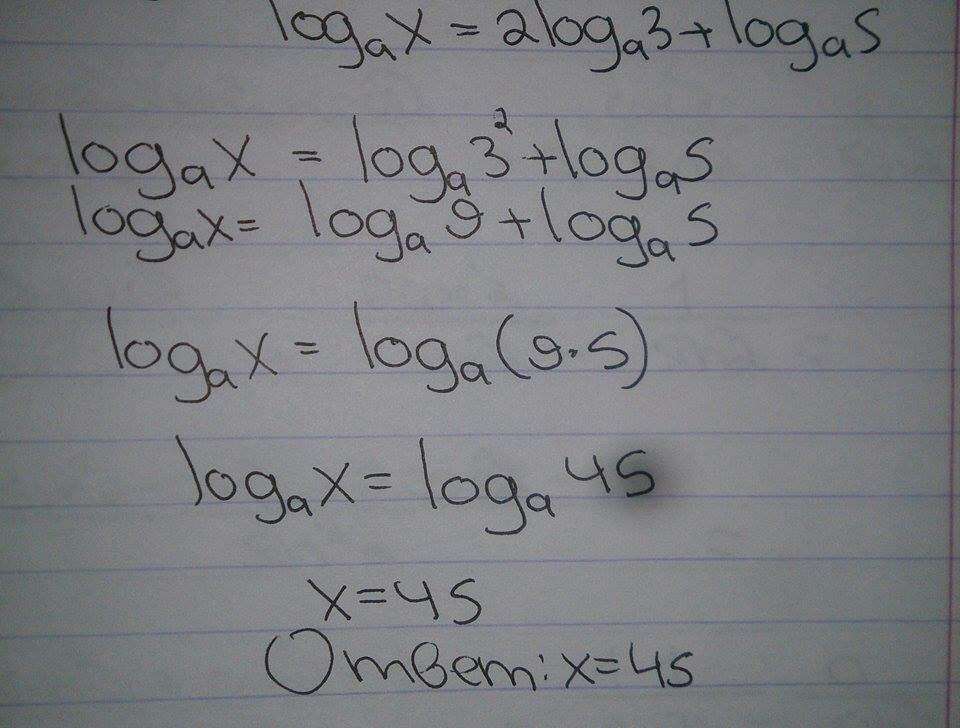 logₐx = 2logₐ3 + logₐ5
logₐx = logₐ3² + logₐ5
logₐx = logₐ9 + logₐ5
logₐx = logₐ(9·5)
logₐx = logₐ45
x = 45
Ответ: x = 45